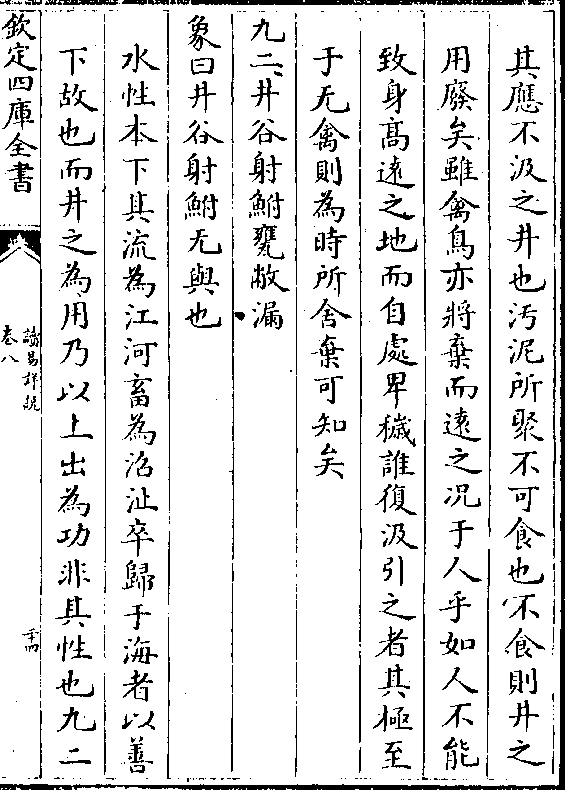 其應不汲之井也汚泥所聚不可食也不食則井之
用廢矣雖禽鳥亦將棄而遠之况于人乎如人不能
致身髙遠之地而自處卑穢誰復汲引之者其極至
于无禽則為時所舍棄可知矣
九二井谷射鮒甕敝漏
象曰井谷射鮒无與也
水性本下其流為江河畜為沼沚卒歸于海者以善
下故也而井之為用乃以上出為功非其性也九二
欽定四庫全書
讀易詳説
卷八